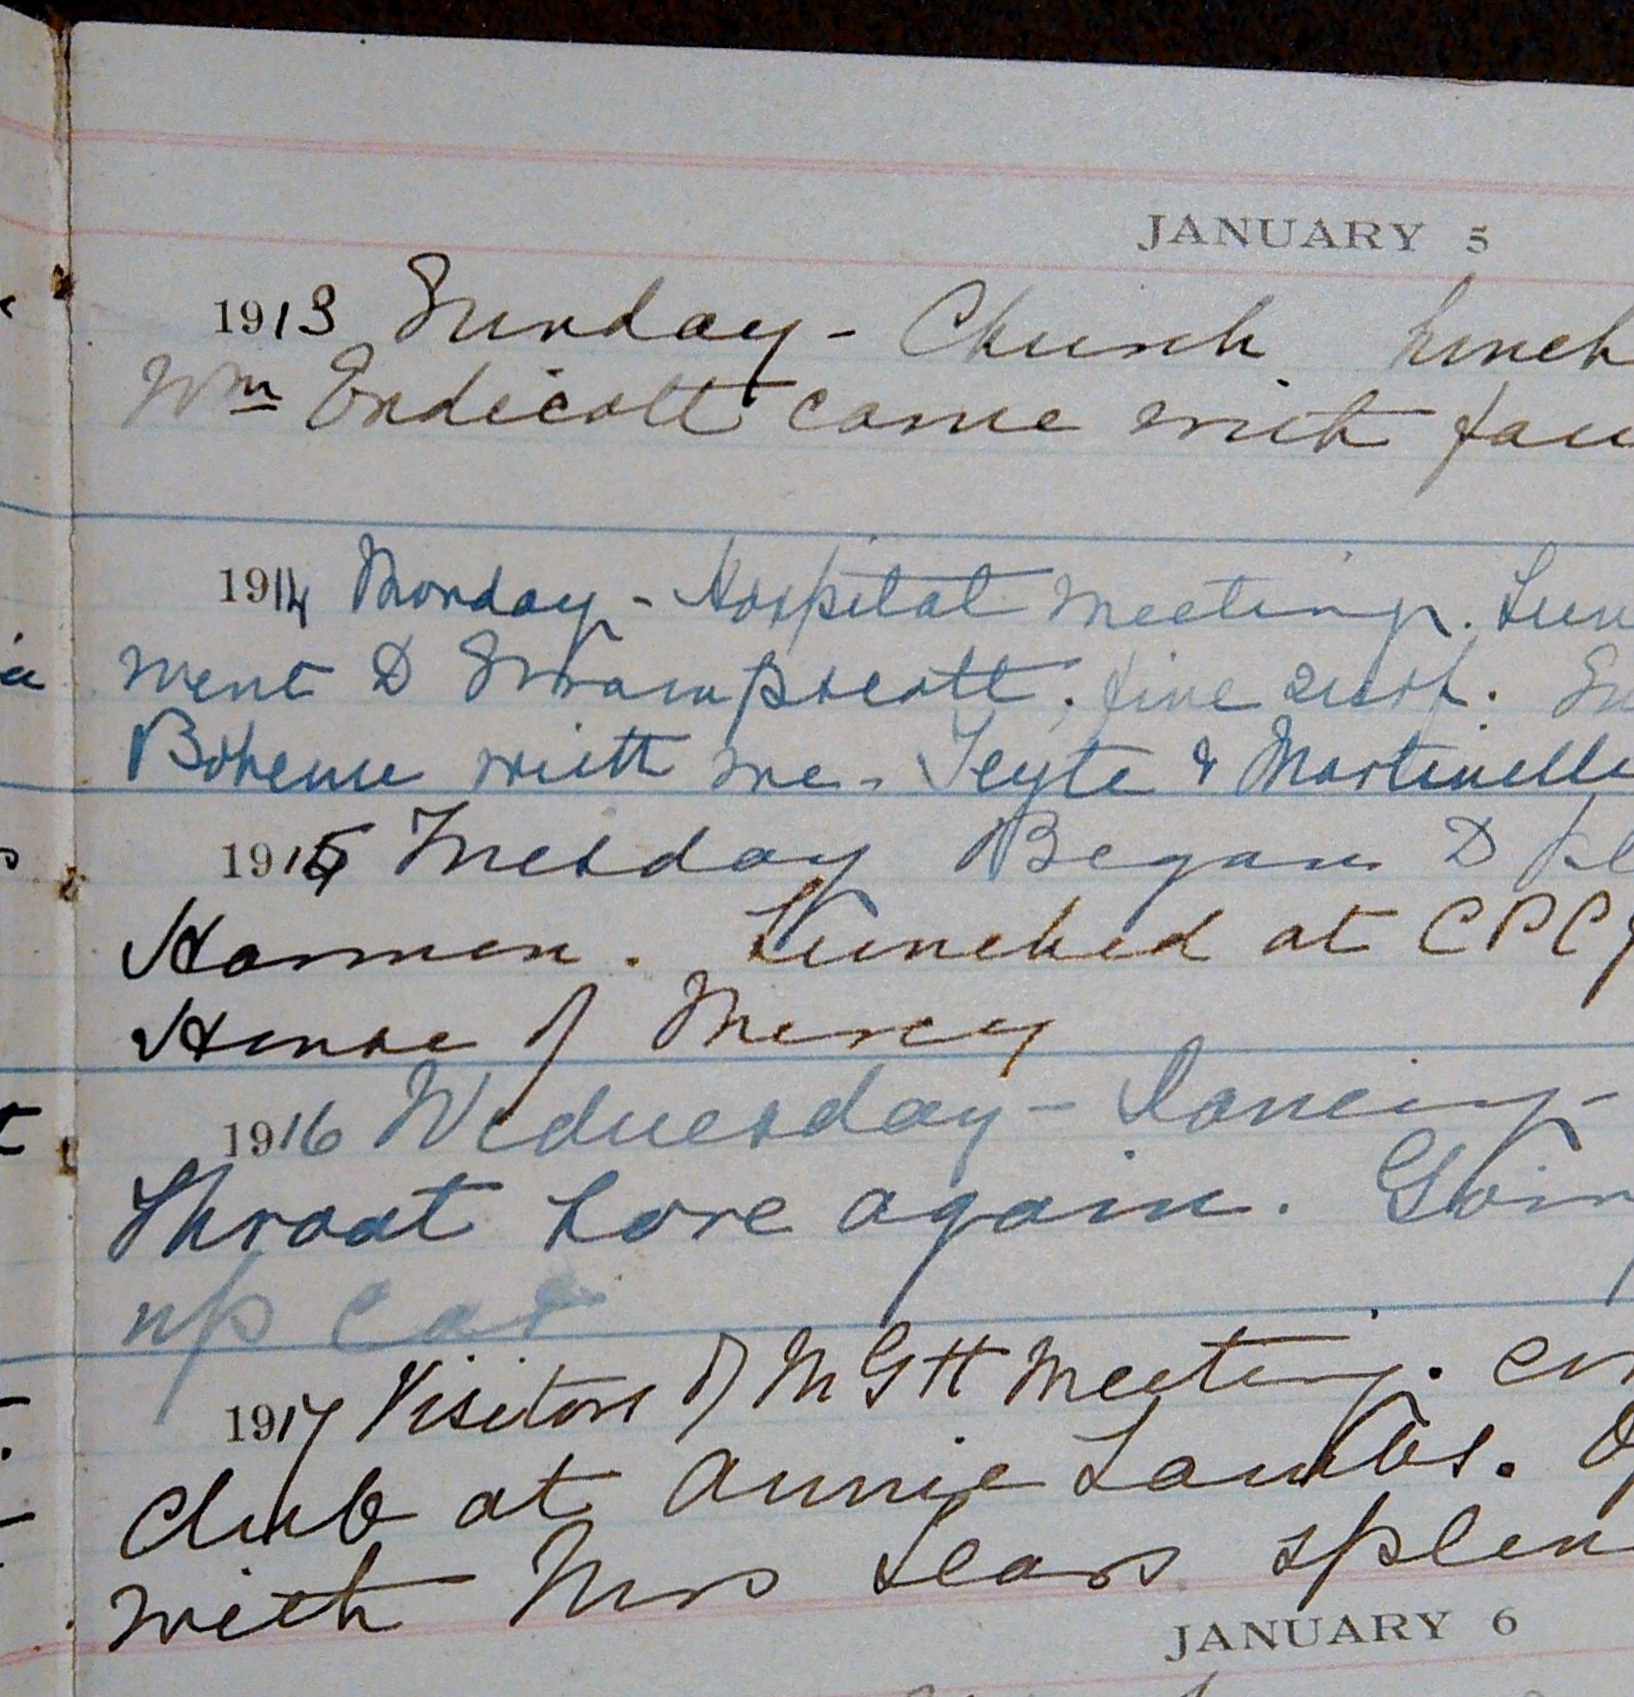 JANUARY 5
1913 Sunday - Church lunch
Wm Endicott came with
1914 Monday - Hospital meeting.
went to Swampscott. fine surf.
Boheme with me - Teyte & Martinelli
1915 Tuesday Began to
Harmon. Lunched at CPC
House of Mercy
1916 Wednesday - Dancing -
Throat sore again.
up
1917 Visitors of MGH meeting.
Club at Annie Lambs.
with Mrs Sears
JANUARY 6